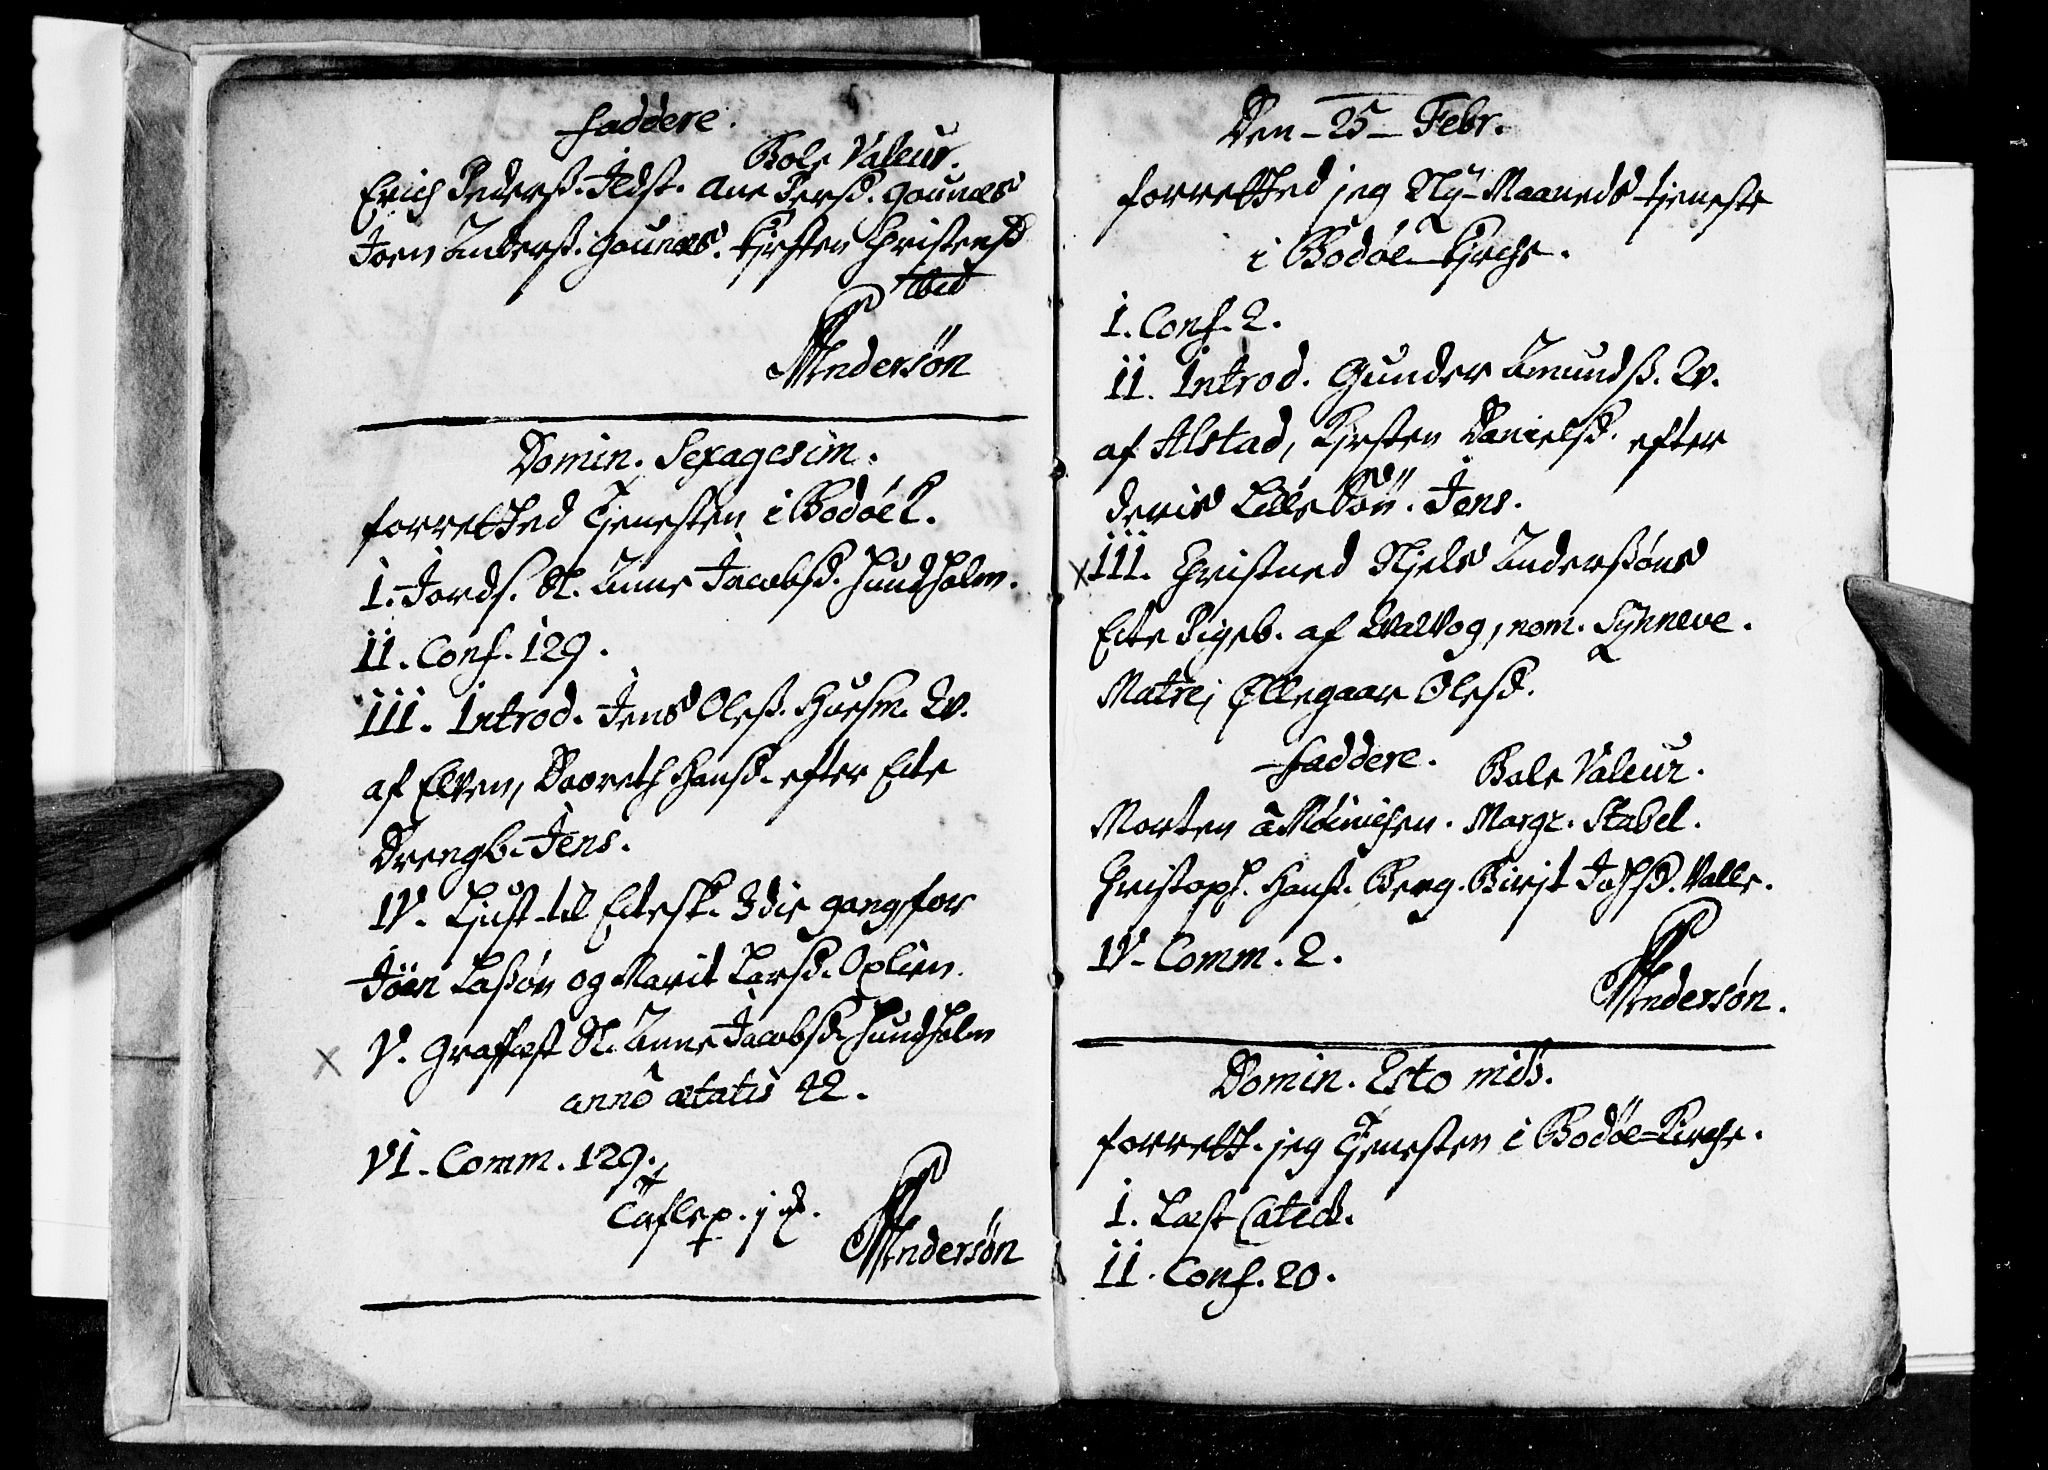 Faddere.
Bole Valeur.
Erich Pederß. Ildst. Ane Persd. Gounæs
Joen Anderß. Gounæs. Kirsten Christensd
ibid
PAndersön
Domin. Sexagesim.
forretthed Tjenesten i Bodøe K.
I. Jords. Sl. Anne Jacobsd. Hundholm.
II. Conf. 129.
III. Introd. Jens Oleß. Huusm. Qv.
af Elven, Dooreth Hansd. efter Ecte
Drengb. Jens.
IV. Liust til Ectesk. 3die gang for
Jöen Laßøn og Marit Larsd. Oplien.
V. Graffæst Sl. Anne Jacobsd. Hundholm
anno ætatis 42.
VI. Comm. 129.
PAndersön
Den 25 Febr.
forretthed jeg Ny-Maaneds-tjeneste
i Bodøe-Kirche.
I. Conf. 2.
II. Introd. Gunder Amundß. Qv.
af Alstad, Kirsten Danielsd. efter
deris Lille Søn. Jens.
III. Christned Njels Anderßøns
Ecte Pigeb. af Hvalvog, nom. Synneve.
Matrej Ollegaar Olesd.
Faddere.
Bole Valeur.
Morten à Möinichen. Margr. Stabel.
Christoph. Hanß. Berg. Birit Johsd. Valle.
IV. Comm. 2.
PAndersön.
Domin. Esto mihi.
forretth. jeg Tjenesten i Bodöe-Kirche.
I. Læst Catech.
II. Conf. 20.